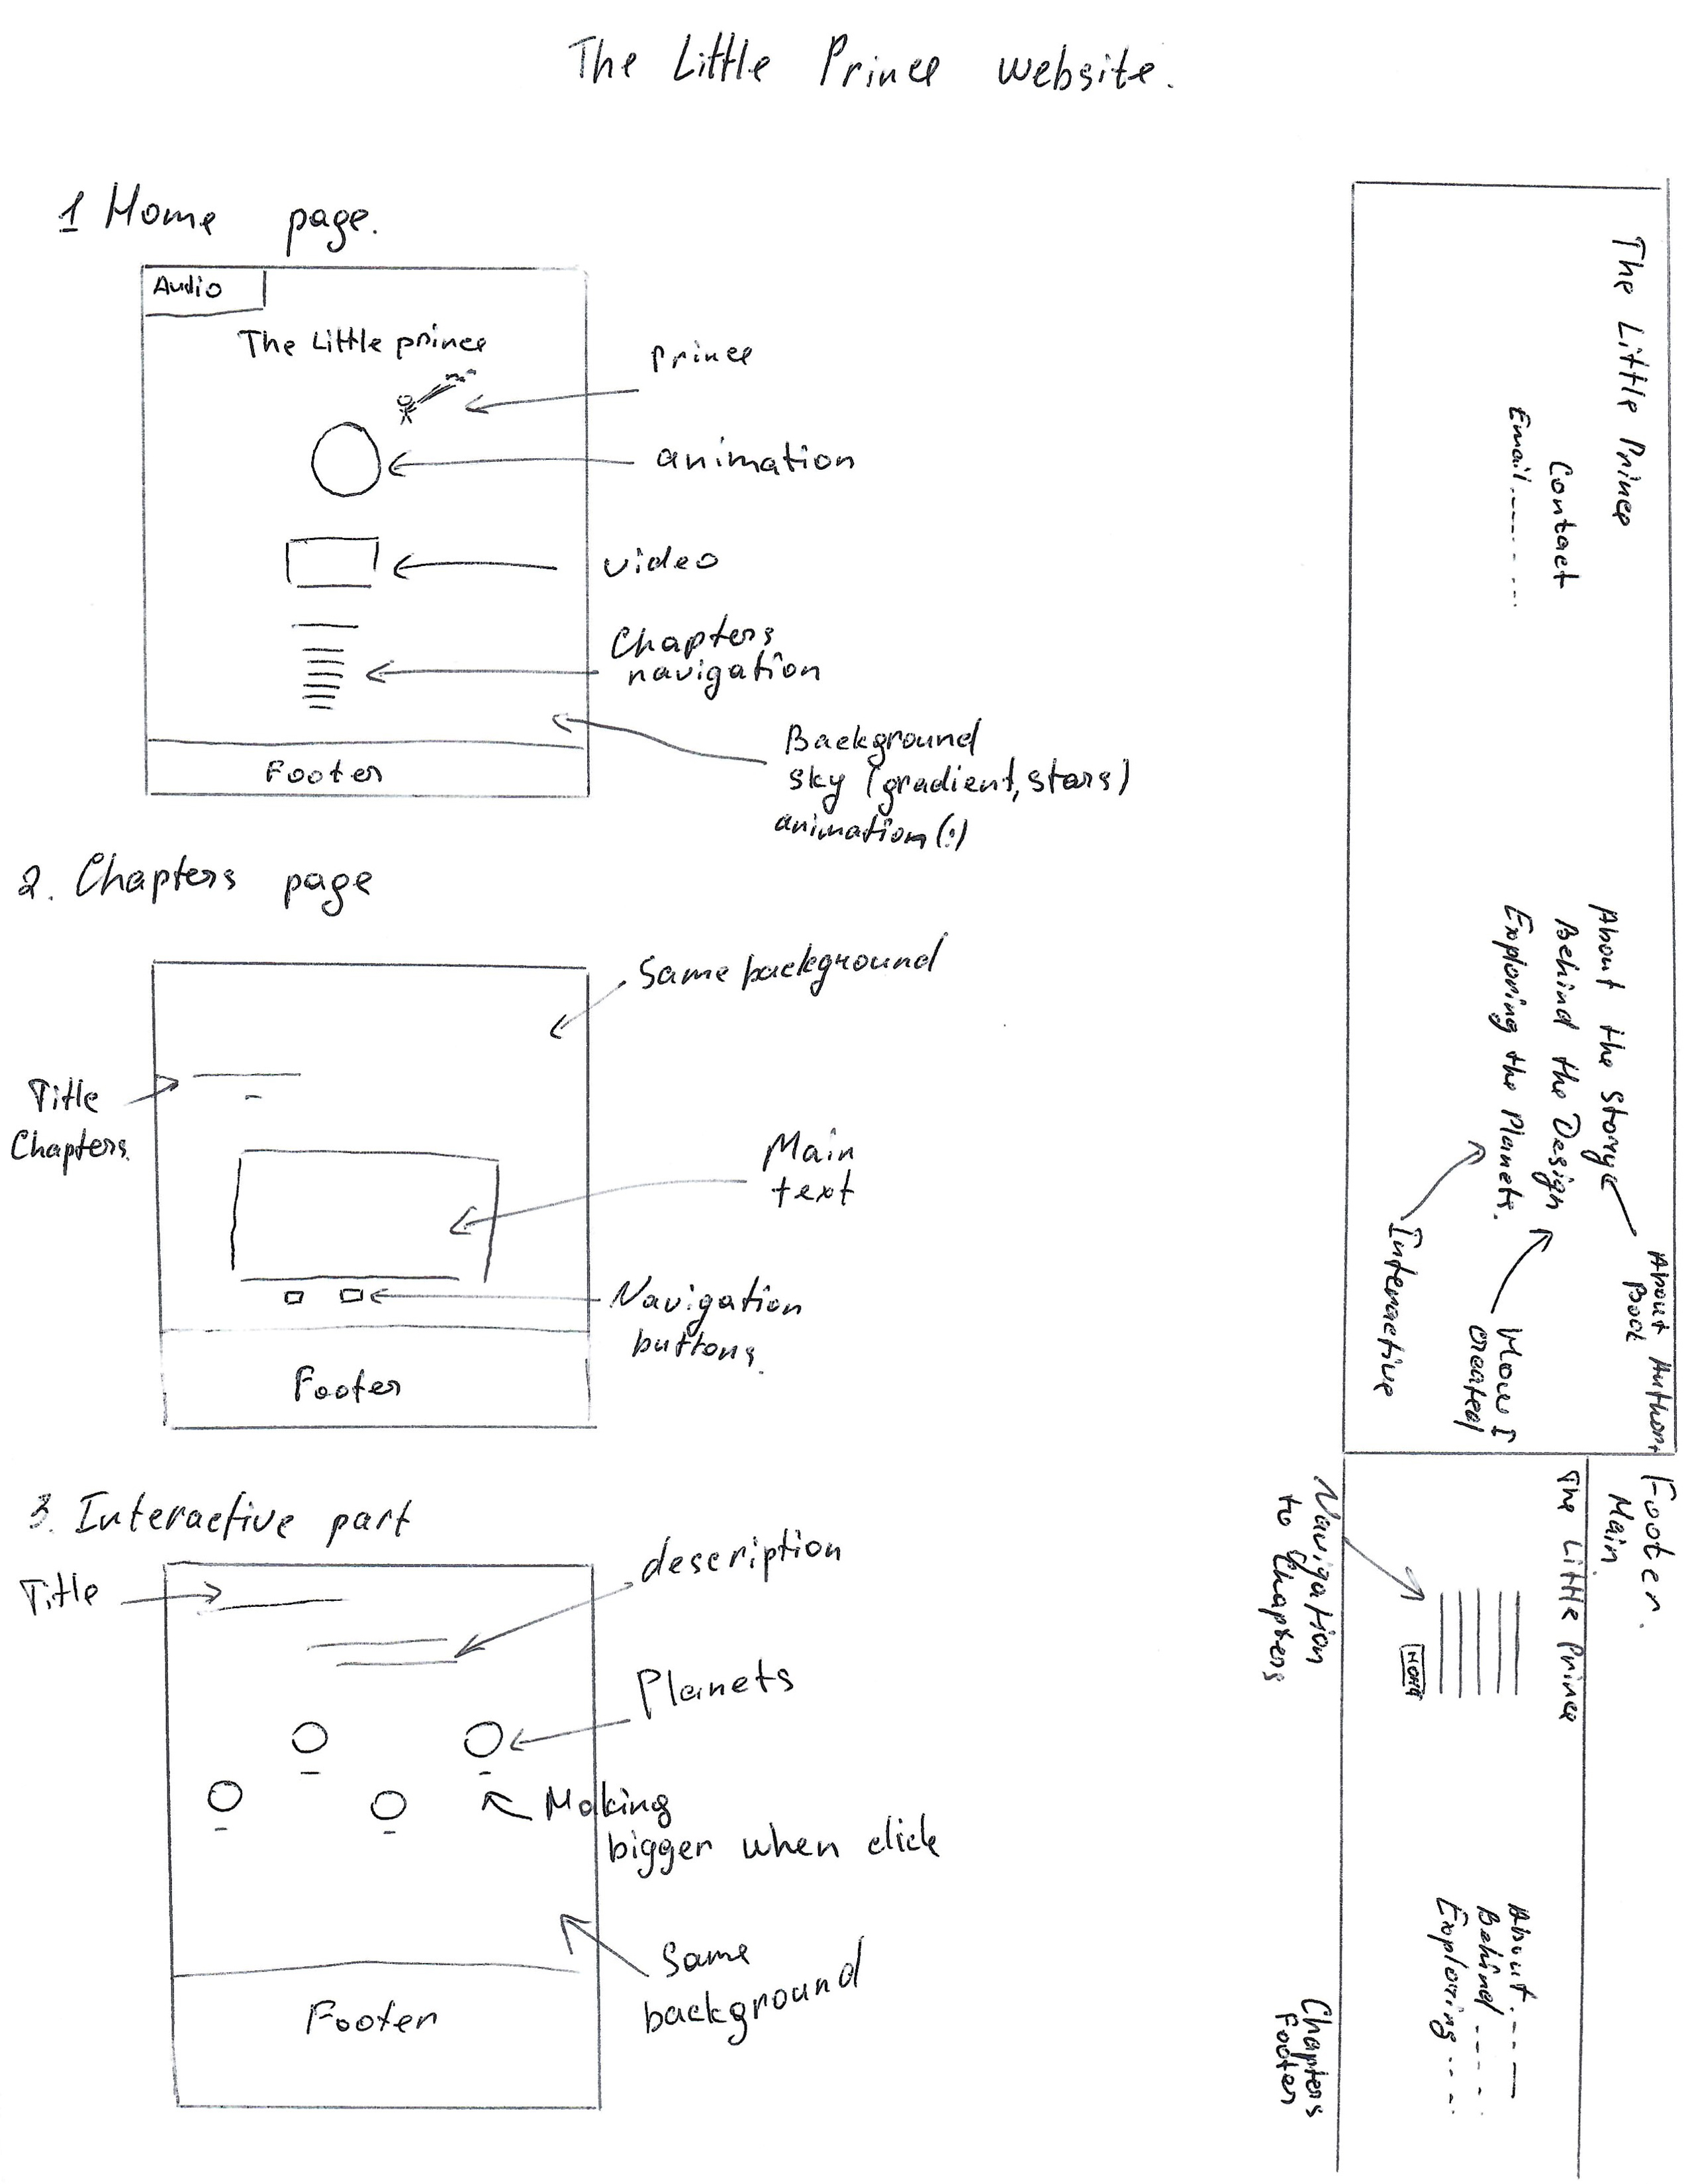 The Little Prince website.
1 Home page.
Audio
The Little prince
Prince
animation
video
Chapters
navigation
Background
sky (gradient, stars)
animation (:)
Footer
2. Chapters page
Same background
Title
Chapters
Main
text
Navigation
buttons.
Footer
3. Interactive part
Title
description
Planets
Making
bigger when click
Same
background
Footer
The Little Prince
Contact
Email
About the Storye
Behind the Design
Exploring the Planets.
About Author+
Book
How I
created
Interactive
Footer.
Main
The Little Prince
Navigation
to Chapters
HOME
About
Behind
Exploring
Chapters
Footer